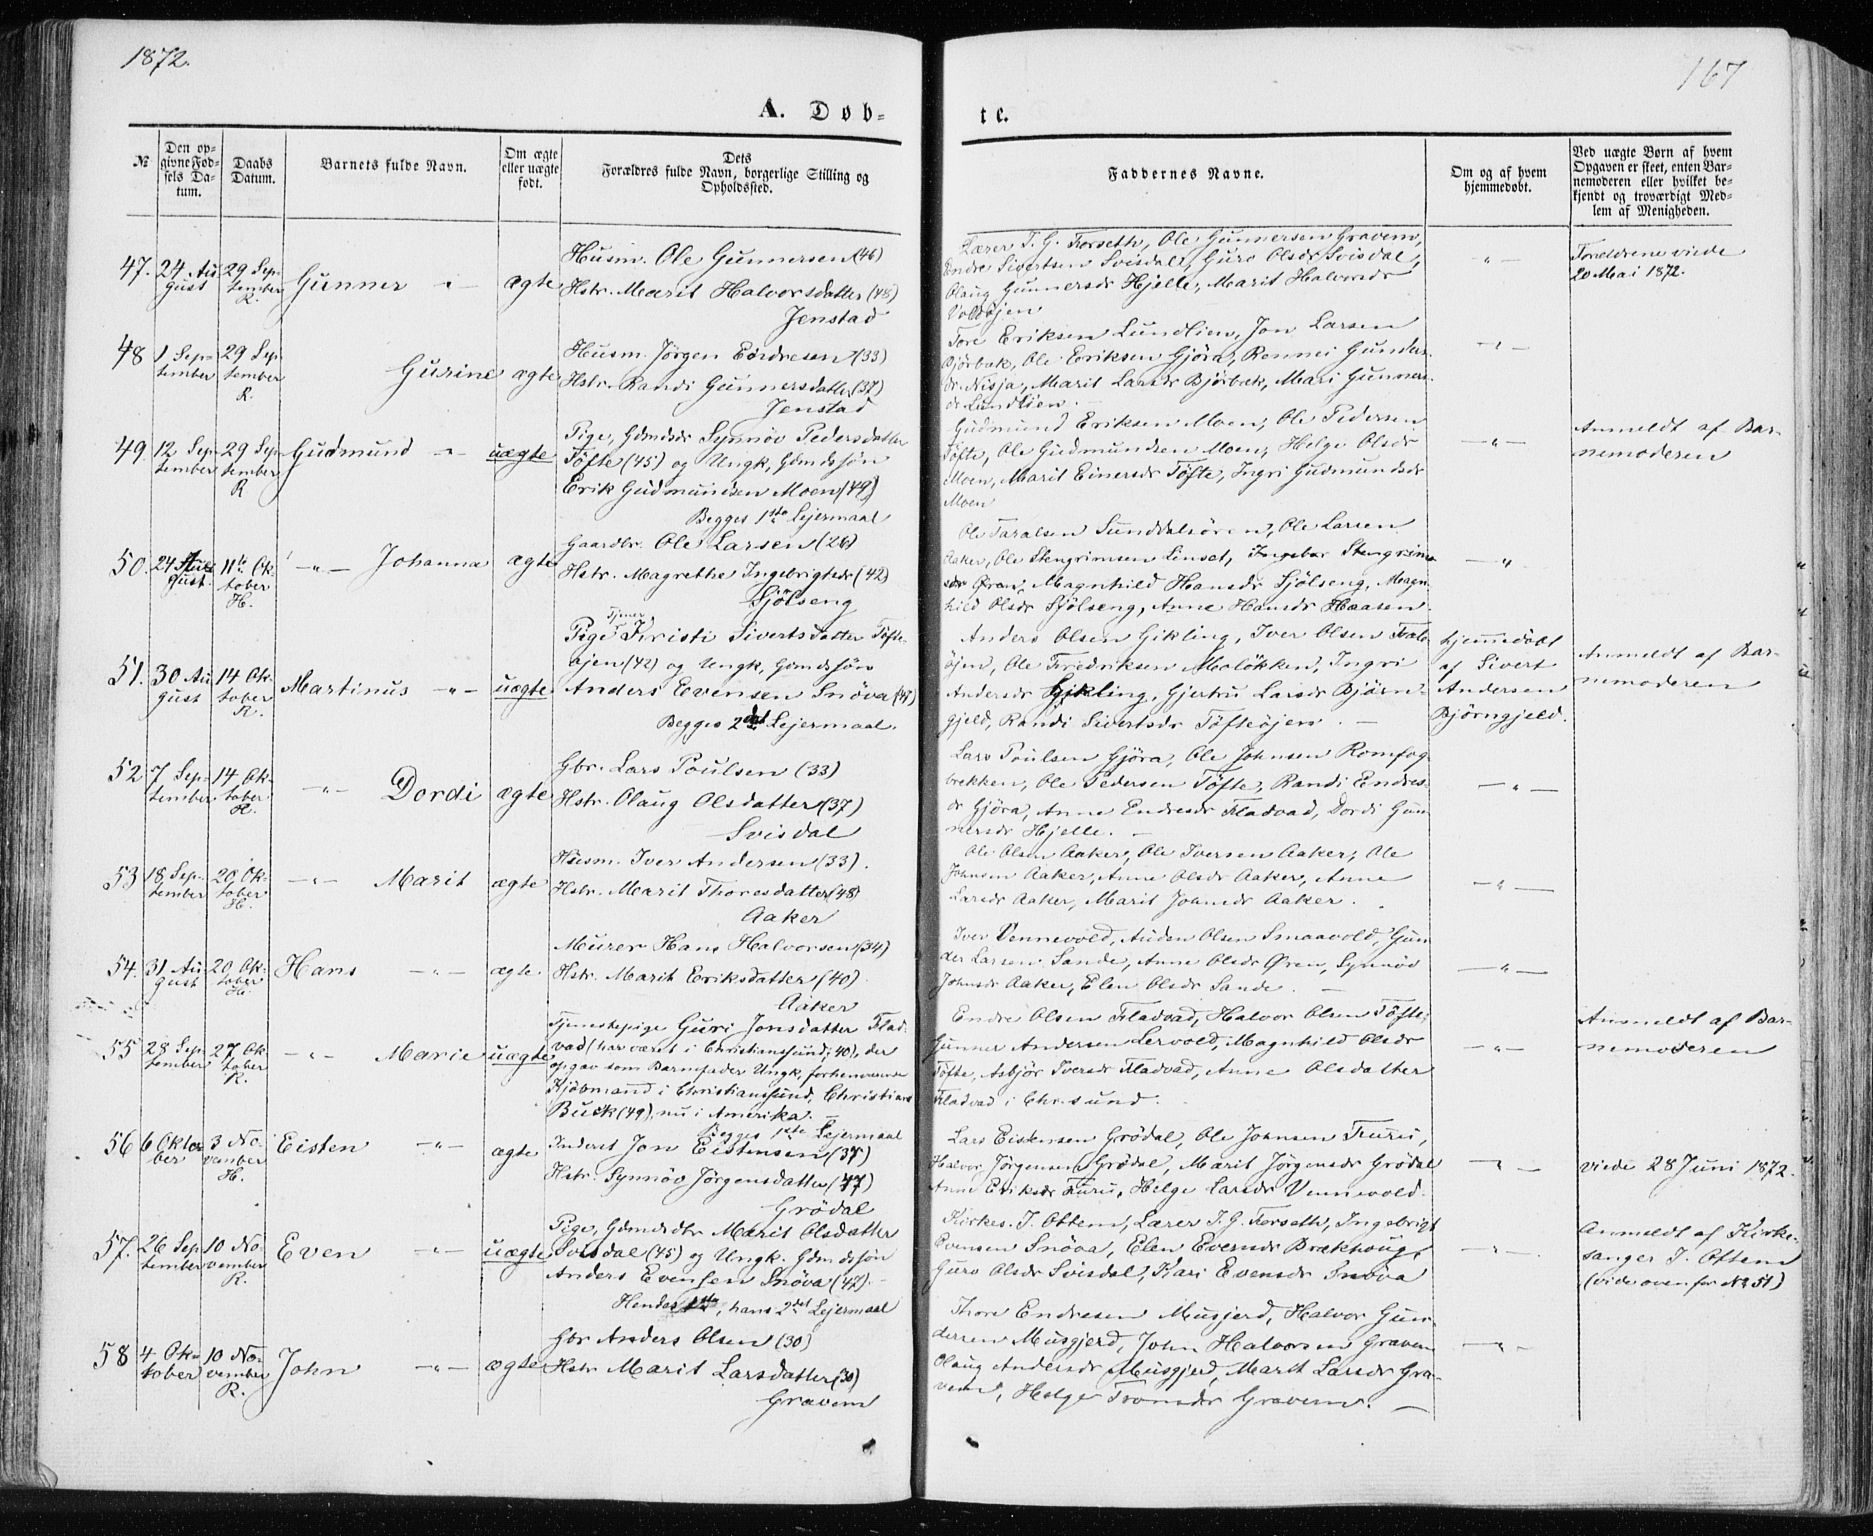 1872.
167
A. Døb-
te.
№
Den op-
givne Fød-
sels Da-
tum.
Daabs
Datum.
Barnets fulde Navn.
Om ægte
eller uægte
født.
Dets
Forældres fulde Navn, borgerlige Stilling og
Opholdssted.
Faddernes Navne.
Om og af hvem
hjemmedøbt.
Ved uægte Børn af hvem
Opgaven er skeet, enten Bar-
nemoderen eller hvilket be-
kjendt og troværdigt Med-
lem af Menigheden.
47.
24 Au
gust
29 Sep-
tember
R.
Gunner
ægte
Husm. Ole Gunnersen (46)
Hstr. Marit Halvorsdatter (48)
Jenstad
Lærer T. G. Forseth, Ole Gunnersen Gravem,
Endre Sivertsen Svisdal, Guro Olsdr Svisdal,
Olaug Gunnersdr Hjelle, Marit Halvorsdr
Voldøjen
Foreldrene viede
20 Mai 1872.
48
1 Sep-
tember
29 Sep
tember
R.
Gurine
ægte
Husm. Jørgen Endresen (33)
Hstr. Randi Gunnersdatter (37)
Jenstad
Tore Eriksen Lundlien, Jon Larsen
Bjørbæk, Ole Eriksen Gjøra, Rennei Gunders
dr. Nisja, Marit Larsdr Bjørbæk, Mari Gunners
dr Lundlien.
49.
12 Sep
tember
29 Sep
tember
R
Gudmund
uægte
Pige, Gdmdsdr Synnøv Pedersdatter
Tøfte (45) og Ungk. Gdmdssøn
Erik Gudmundsen Moen (49)
Begges 1ste Lejermaal
Gudmund Eriksen Moen, Ole Pedersen
Tøfte, Ole Gudmundsen Moen, Helge Olsdr
Moen, Marit Einersdr Tøfte, Ingri Gudmundsdr
Moen
Anmeldt af Bar-
nemoderen
50.
24 Au
gust.
11te Ok
tober
H.
Johanna
ægte
Gaardbr. Ole Larsen (26)
Hstr. Magrethe Ingebrigtsdr (42)
Sjølseng
Ole Taralsen Sunddalsøren, Ole Larsen
Aaker, Ole Stengrimsen Linset, Ingebor Stengrims
dr Øren, Magnhild Hansdr Sjølseng, Magn
hild Olsdr Sjølseng, Anne Hansdr Haasen.
51.
30 Au
gust
14 Ok
tober
R.
Martinus
uægte
Tjener
Pige Kristi Sivertsdatter Tøfte-
øjen (42) og Ungk, Gdmdssøn
Anders Evensen Snøva (47)
Begges 2det Lejermaal.
Anders Olsen Gikling, Iver Olsen
øjen, Ole Fredriksen Moløkken, Ingri
Andersdr Gjikling, Gjertru Larsdr Bjørn-
gjeld, Randi Sivertsdr Tøfteøjen.
hjemmedøbt
af Sivert
Andersen
Bjørngjeld.
Anmeldt af Bar-
nemoderen
52
7 Sep-
tember
14 Ok-
tober
R.
Dordi
ægte
Gbr. Lars Poulsen (33)
Hstr. Olaug Olsdatter (37)
Svisdal
Lars Poulsen Gjøra, Ole Johnsen Romfog
brekken, Ole Pedersen Tøfte, Randi Endres-
dr Gjøra, Anne Endresdr Fladvad, Dordi Gun
nersdr Hjelle.
53
18 Sep-
tember
20 Ok-
tober
H.
Marit
ægte
Husm. Iver Andersen (33).
Hstr. Marit Thoresdatter (48)
Aaker
Ole Olsen Aaker, Ole Iversen Aaker, Ole
Johnsen Aaker, Anne Olsdr Aaker, Anne
Larsdr Aaker, Marit Johnsdr Aaker.
54.
31 Au
gust
20 Ok-
tober
H.
Hans
ægte
Murer Hans Halvorsen (34)
Hstr. Marit Eriksdatter (40)
Aaker
Iver Vennevold, Auden Olsen Smaavold, Gun
der Larsen Sande, Anne Olsdr Øren, Synnøv
Johnsdr Aaker, Elen Olsdr Sande.
55
28 Sep-
tember
27 Ok
tober
R.
Marie
uægte
Tjenestepige Guri Jonsdatter Flad-
vad (har været i Christianssund, 40), der
opgav som Barnefader Ungk, forhenværende
Kjøbmand i Christianssund, Christian
Buck (49), nu i Amerika.
Begges 1ste Lejermaal
Endre Olsen Fladvad, Halvor Olsen Tøfte,
Gunner Andersen Lervold, Magnhild Olsdr
Tøfte, Asbjør Iversdr Fladvad, Anne Olsdatter
Fladvad i Chr.sund.
Anmeldt af Bar-
nemoderen
56
6 Okto
ber
3 No-
vember
H.
Eisten
ægte
Inderst Jon Eistensen (37)
Hstr. Synnøv Jørgensdatter (47)
Grødal
Lars Eistensen Grødal, Ole Johnsen Furu,
Halvor Jørgensen Grødal, Marit Jørgensdr Grødal
Anne Eriksdr Furu, Helge Larsdr Vennevold.
viede 28 Juni 1872.
57.
26 Sep
tember
10 No
vember
R.
Even
uægte
Pige, Gdmdsdtr Marit Olsdatter
Svisdal (45) og Ungk. Gdmdssøn
Anders Evensen Snøva (47).
Hendes 1ste, hans 2det Lejermaal
Kirkes. J. Ottem, Lærer T. G. Forseth, Ingebrigt
Evensen Snøva, Elen Evensdr Brækhoug,
Guro Olsdr Svisdal, Kari Evensdr Snøva
Anmeldt af Kirke-
sanger J. Ottem
(vide ovenfor No 51)
58
4 Ok-
tober
10 No-
vember
R.
John
ægte
Gbr Anders Olsen (30)
Hstr Marit Larsdatter (30)
Gravem
Thore Endresen Musgjerd, Halvor Gun-
dersen Musgjerd, John Halvorsen Gravem
Olaug Andersdr Musgjerd, Marit Larsdr Gra-
vem, Helge Tronsdr Gravem.